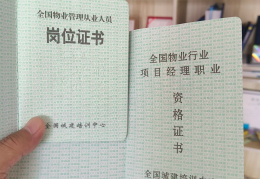 全国物业管理从业人员
岗位证书
全国城建培训中心
全国物业行业
项目经理职业
资
格
证
书
全国城建培训